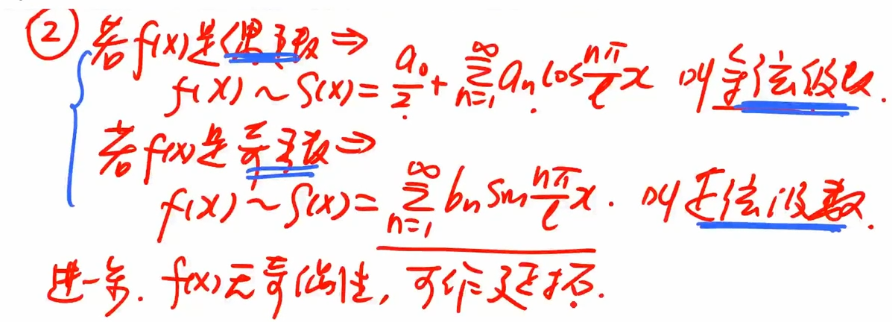 ② 若f(x)是偶函数⇒
f(x)~S(x)=a₀/2+∑_{n=1}^{∞}aₙcos(nπ/l)x 叫余弦级数.
若f(x)是奇函数⇒
f(x)~S(x)=∑_{n=1}^{∞}bₙsin(nπ/l)x. 叫正弦级数.
进一步. f(x)无奇偶性, 可作延拓.